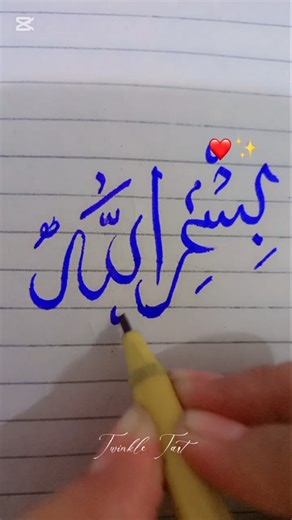 بِسْمِ اللّٰهِ
Twinkle Tart